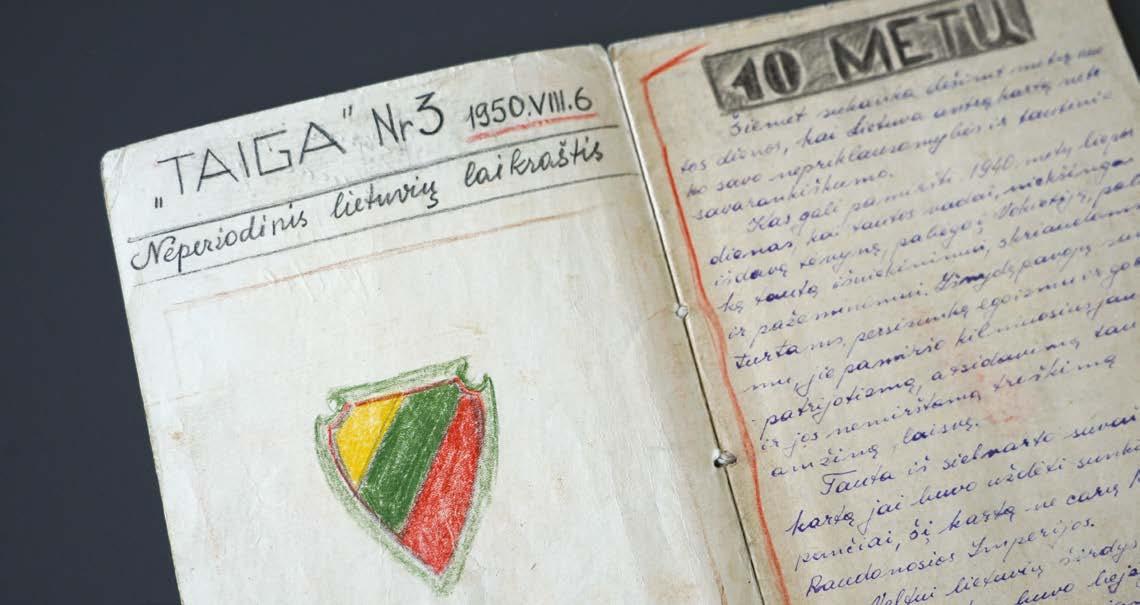 „TAIGA" Nr3 1950.VIII.6
Neperiodinis lietuvių laikraštis
10 METŲ
Šiemet sukanka dešimt metų nuo
tos dienos, kai Lietuva antrą kartą nete
ko savo nepriklausomybės ir tautinio
savarankiškumo.
Kas gali pamiršti 1940 metų liepos
dienas, kai tautos vadai, niekšingai
išdavę tėvynę, pabėgo į Vokietiją, pali
ką tautą išniekinimui, skriaudoms
ir pažeminimui. Išvydę pavojų sa
turtams, persisunkę egoizmu ir go
mu, jie pamiršo kilniuosius jau
patrijotizmą, atsidavimą tau
ir jos nemirštamą troškimą
amžiną laisvę.
Tauta iš sielvarto suvai
kartą jai buvo uždėti sunkū
pančiai, šį kartą ne carų
Raudonosios Imperijos.
Veltui lietuvių širdys